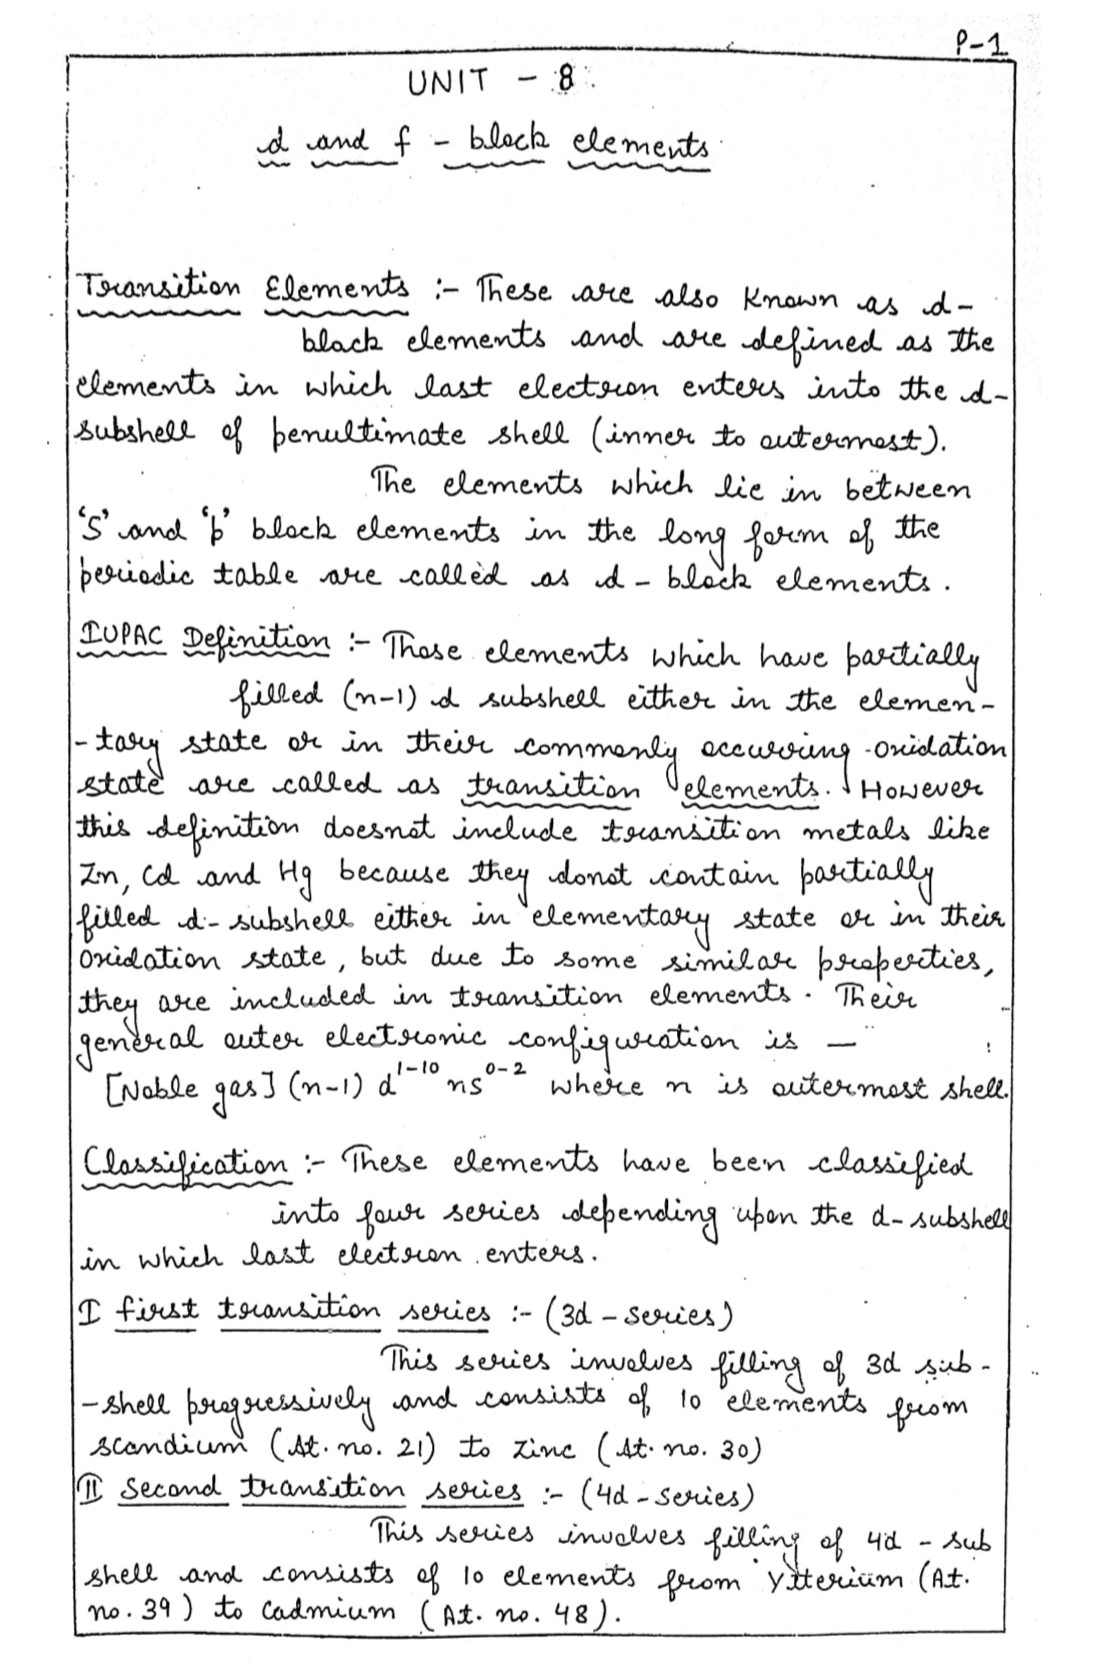 P-1
UNIT - 8
d and f - block elements
Transition Elements :- These are also known as d-
block elements and are defined as the
elements in which last electron enters into the d-
subshell of penultimate shell (inner to outermost).
The elements which lie in between
'S' and 'p' block elements in the long form of the
periodic table are called as d - block elements.
IUPAC Definition :- Those elements which have partially
filled (n-1) d subshell either in the elemen-
-tary state or in their commonly occurring oxidation
state are called as transition elements. However
this definition doesnot include transition metals like
Zn, Cd and Hg because they donot contain partially
filled d-subshell either in elementary state or in their
oxidation state, but due to some similar properties,
they are included in transition elements. Their
general outer electronic configuration is —
[Noble gas] (n-1) d¹⁻¹⁰ ns⁰⁻² where n is outermost shell.
Classification :- These elements have been classified
into four series depending upon the d-subshell
in which last electron enters.
I first transition series :- (3d - series)
This series involves filling of 3d sub-
-shell progressively and consists of 10 elements from
scandium (At. no. 21) to zinc (At. no. 30)
II Second transition series :- (4d - series)
This series involves filling of 4d - sub
shell and consists of 10 elements from Ytterium (At.
no. 39) to Cadmium (At. no. 48).